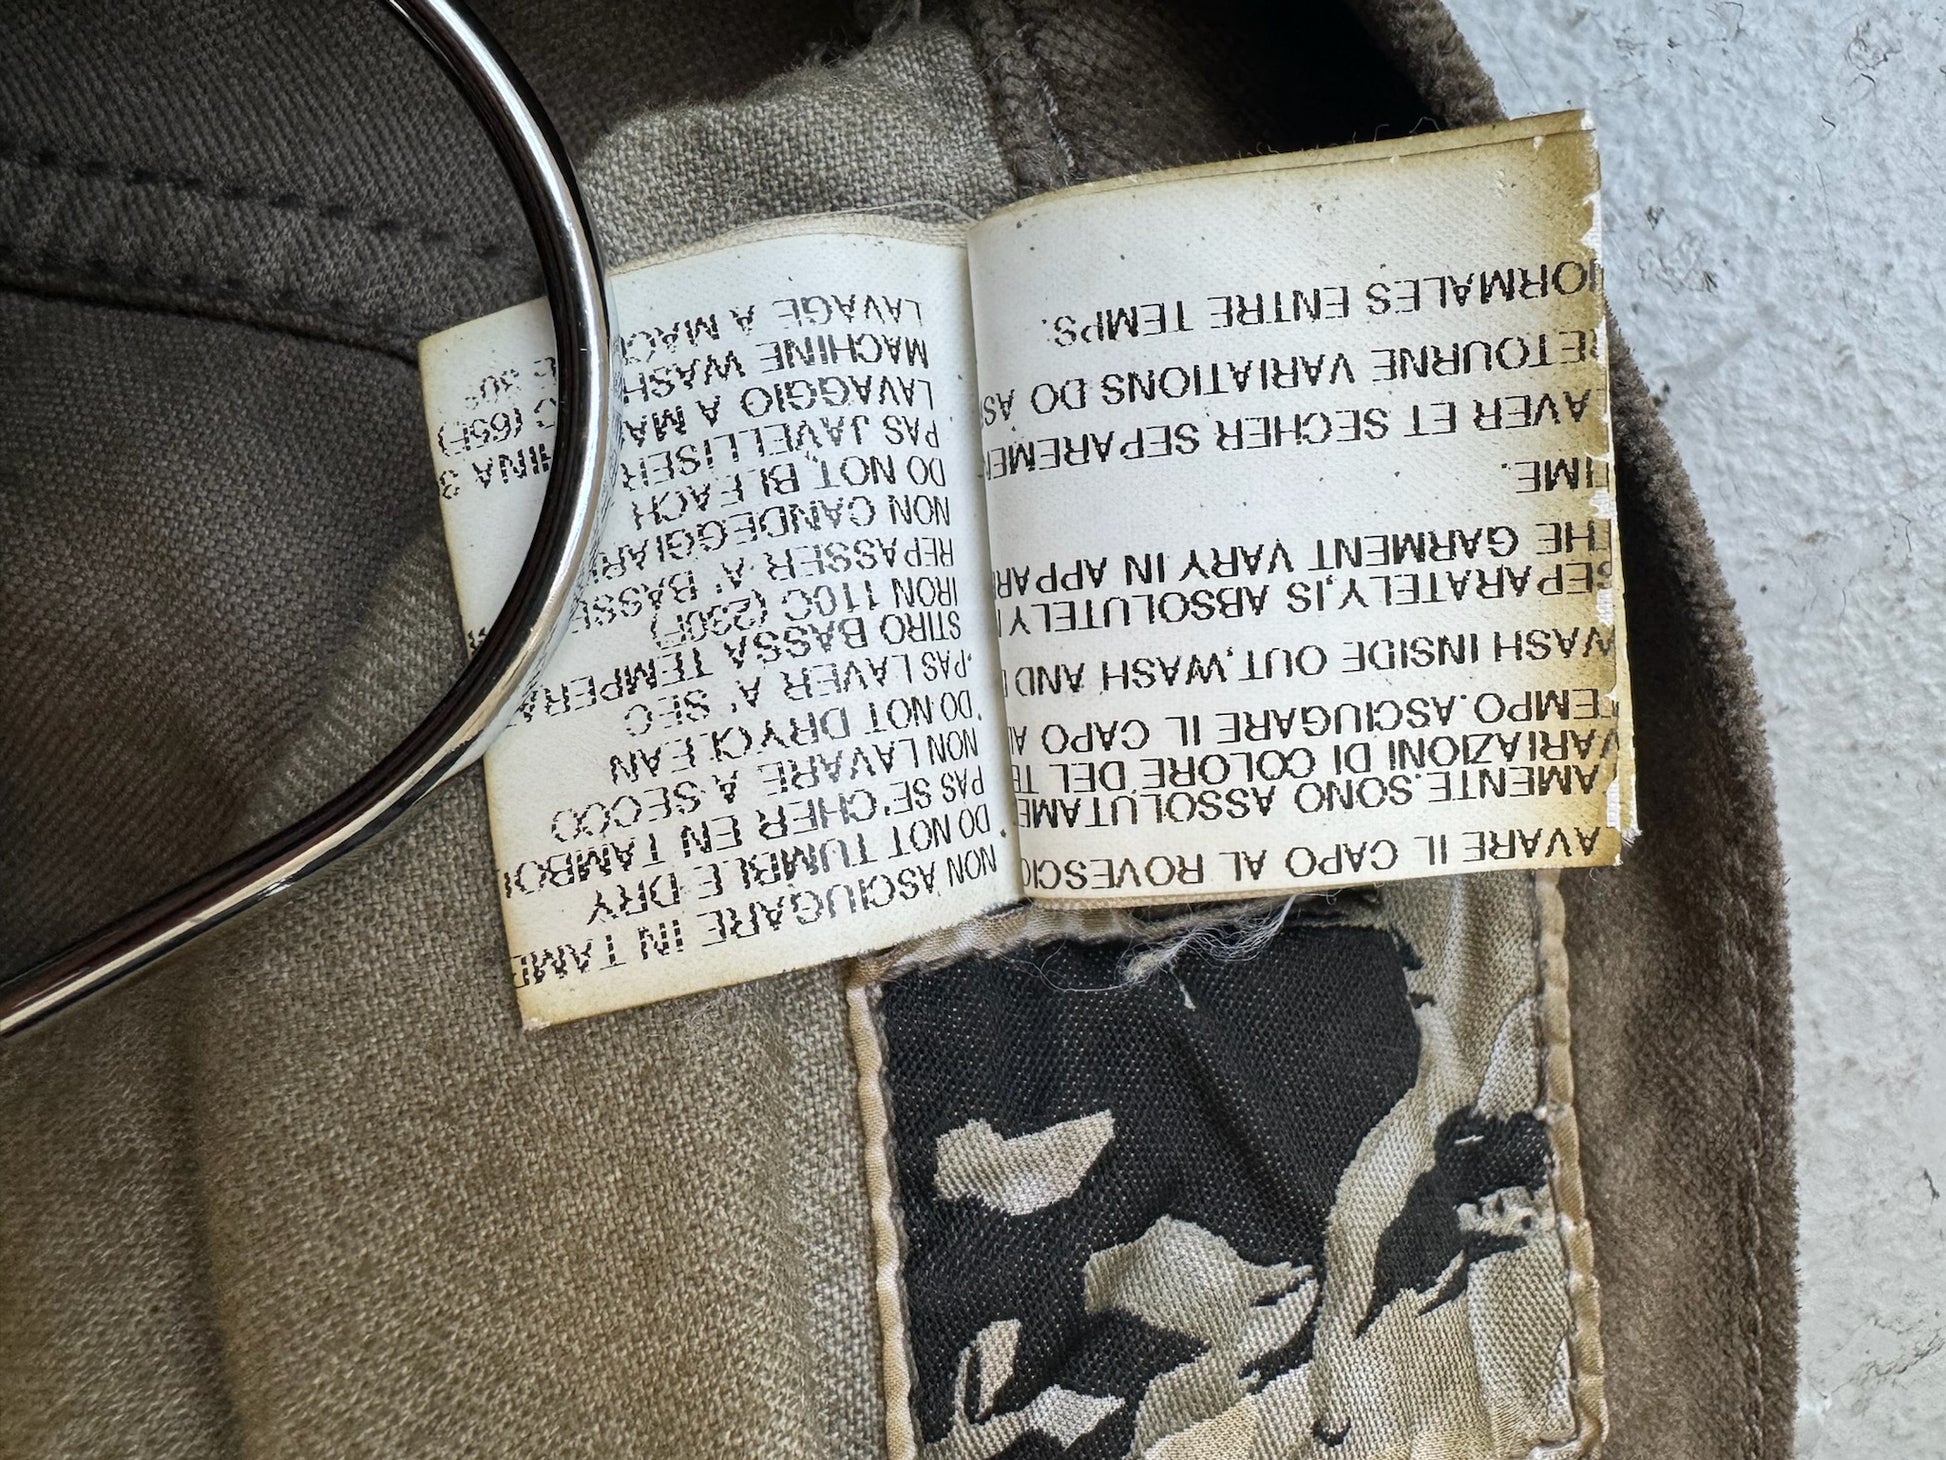 AVARE IL CAPO AL ROVESCIO
AMENTE.SONO ASSOLUTAME
VARIAZIONI DI COLORE DEL TE
TEMPO.ASCIUGARE IL CAPO AL
WASH INSIDE OUT,WASH AND
SEPARATELY,IS ABSOLUTELY
THE GARMENT VARY IN APPAR
TIME.
AVER ET SECHER SEPAREMEN
RETOURNE VARIATIONS DO AS
NORMALES ENTRE TEMPS.
NON ASCIUGARE IN TAMB
DO NOT TUMBLE DRY
PAS SE'CHER EN TAMBO
NON LAVARE A SECCO
DO NOT DRYCLEAN
PAS LAVER A. SEC
STIRO BASSA TEMPERA
IRON 110C (230F)
REPASSER A. BASSE
NON CANDEGGIARE
DO NOT BLEACH
PAS JAVELLISER
LAVAGGIO A MA HINA 3
MACHINE WASH C (65F)
LAVAGE A MAC